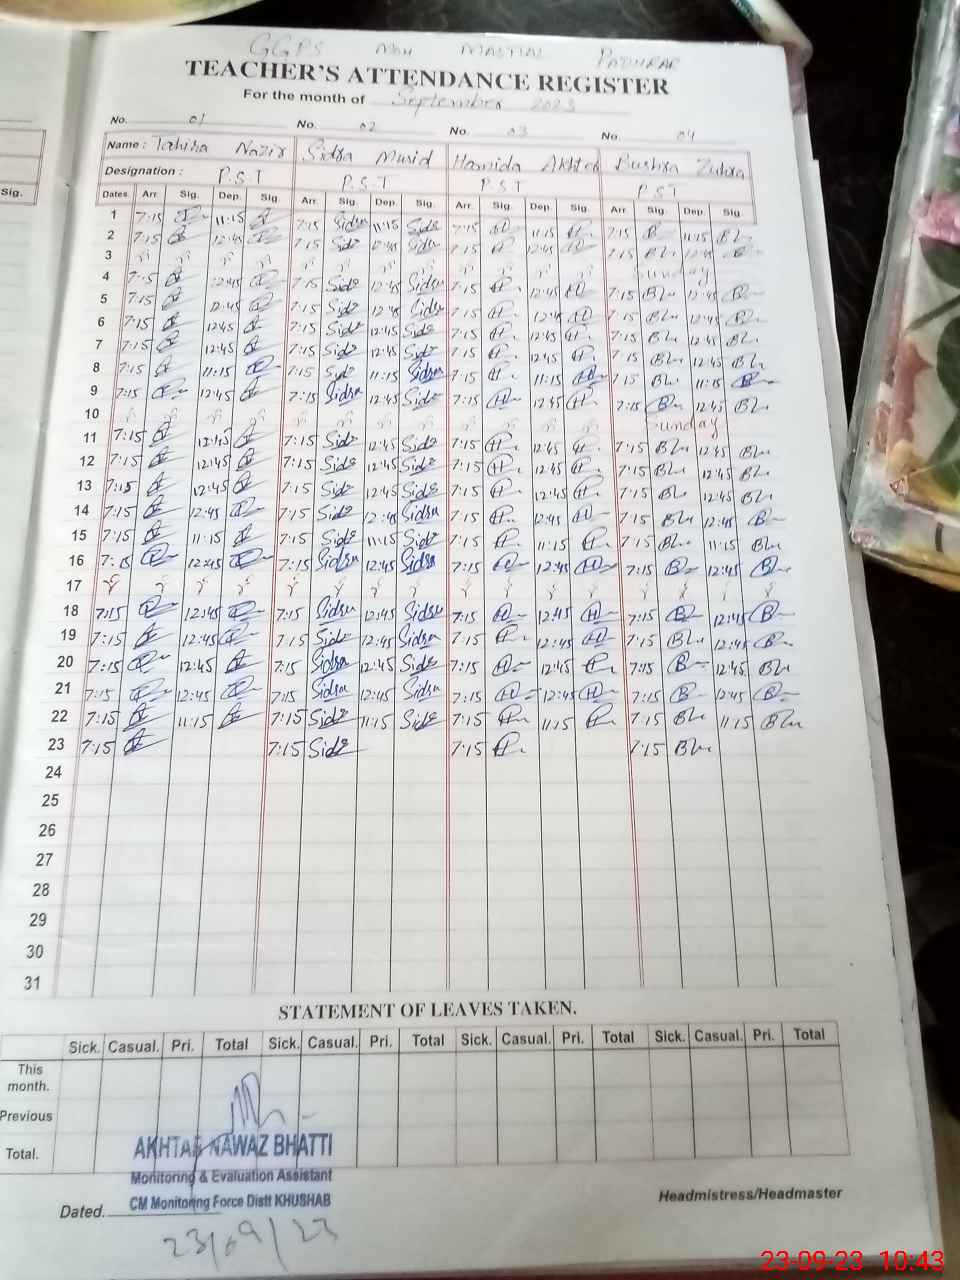 GGPS MASTIAL PADHRAR
TEACHER'S ATTENDANCE REGISTER
For the month of September 2023
No. 01 No. 02 No. 03 No. 04
Name : Tahira Nazir Sidra Murid Hamida Akhter Bushra Zuhra
Designation : P.S.T P.S.T P.S.T P.S.T
Sig.
Dates. Arr. Sig. Dep. Sig. Arr. Sig. Dep. Sig. Arr. Sig. Dep. Sig. Arr. Sig. Dep. Sig.
1 7:15 11:15 7:15 Sidra 11:15 Side 7:15 11:15 7:15 B 11:15 BL
2 7:15 12:45 7:15 Side 12:45 Sidra 7:15 12:45 7:15 BL 12:45 B
3 Sunday
4 7:15 12:45 7:15 Side 12:45 Sidra 7:15 12:45 7:15 BL 12:45 B
5 7:15 12:45 7:15 Side 12:45 Sidra 7:15 12:45 7:15 BL 12:45 B
6 7:15 12:45 7:15 Side 12:45 Side 7:15 12:45 7:15 BL 12:45 BL
7 7:15 12:45 7:15 Side 12:45 Side 7:15 12:45 7:15 BL 12:45 BL
8 7:15 11:15 7:15 Side 11:15 Sidra 7:15 11:15 7:15 BL 11:15 B
9 7:15 12:45 7:15 Sidra 12:45 Side 7:15 12:45 7:15 B 12:45 BL
10 Sunday
11 7:15 12:45 7:15 Side 12:45 Side 7:15 12:45 7:15 BL 12:45 BL
12 7:15 12:45 7:15 Side 12:45 Side 7:15 12:45 7:15 BL 12:45 BL
13 7:15 12:45 7:15 Side 12:45 Side 7:15 12:45 7:15 BL 12:45 BL
14 7:15 12:45 7:15 Side 12:45 Sidra 7:15 12:45 7:15 BL 12:45 B
15 7:15 11:15 7:15 Side 11:15 Side 7:15 11:15 7:15 BL 11:15 BL
16 7:15 12:45 7:15 Sidra 12:45 Sidra 7:15 12:45 7:15 B 12:45 B
17
18 7:15 12:45 7:15 Sidra 12:45 Sidra 7:15 12:45 7:15 B 12:45 B
19 7:15 12:45 7:15 Side 12:45 Sidra 7:15 12:45 7:15 BL 12:45 B
20 7:15 12:45 7:15 Sidra 12:45 Side 7:15 12:45 7:15 B 12:45 BL
21 7:15 12:45 7:15 Sidra 12:45 Sidra 7:15 12:45 7:15 B 12:45 B
22 7:15 11:15 7:15 Side 11:15 Side 7:15 11:15 7:15 BL 11:15 BL
23 7:15 7:15 Side 7:15 7:15 BL
24
25
26
27
28
29
30
31
STATEMENT OF LEAVES TAKEN.
Sick. Casual. Pri. Total Sick. Casual. Pri. Total Sick. Casual. Pri. Total Sick. Casual. Pri. Total
This month.
Previous
Total.
AKHTAR NAWAZ BHATTI
Monitoring & Evaluation Assistant
CM Monitoring Force Distt KHUSHAB
Headmistress/Headmaster
Dated.
23/09/23
23-09-23 10:43